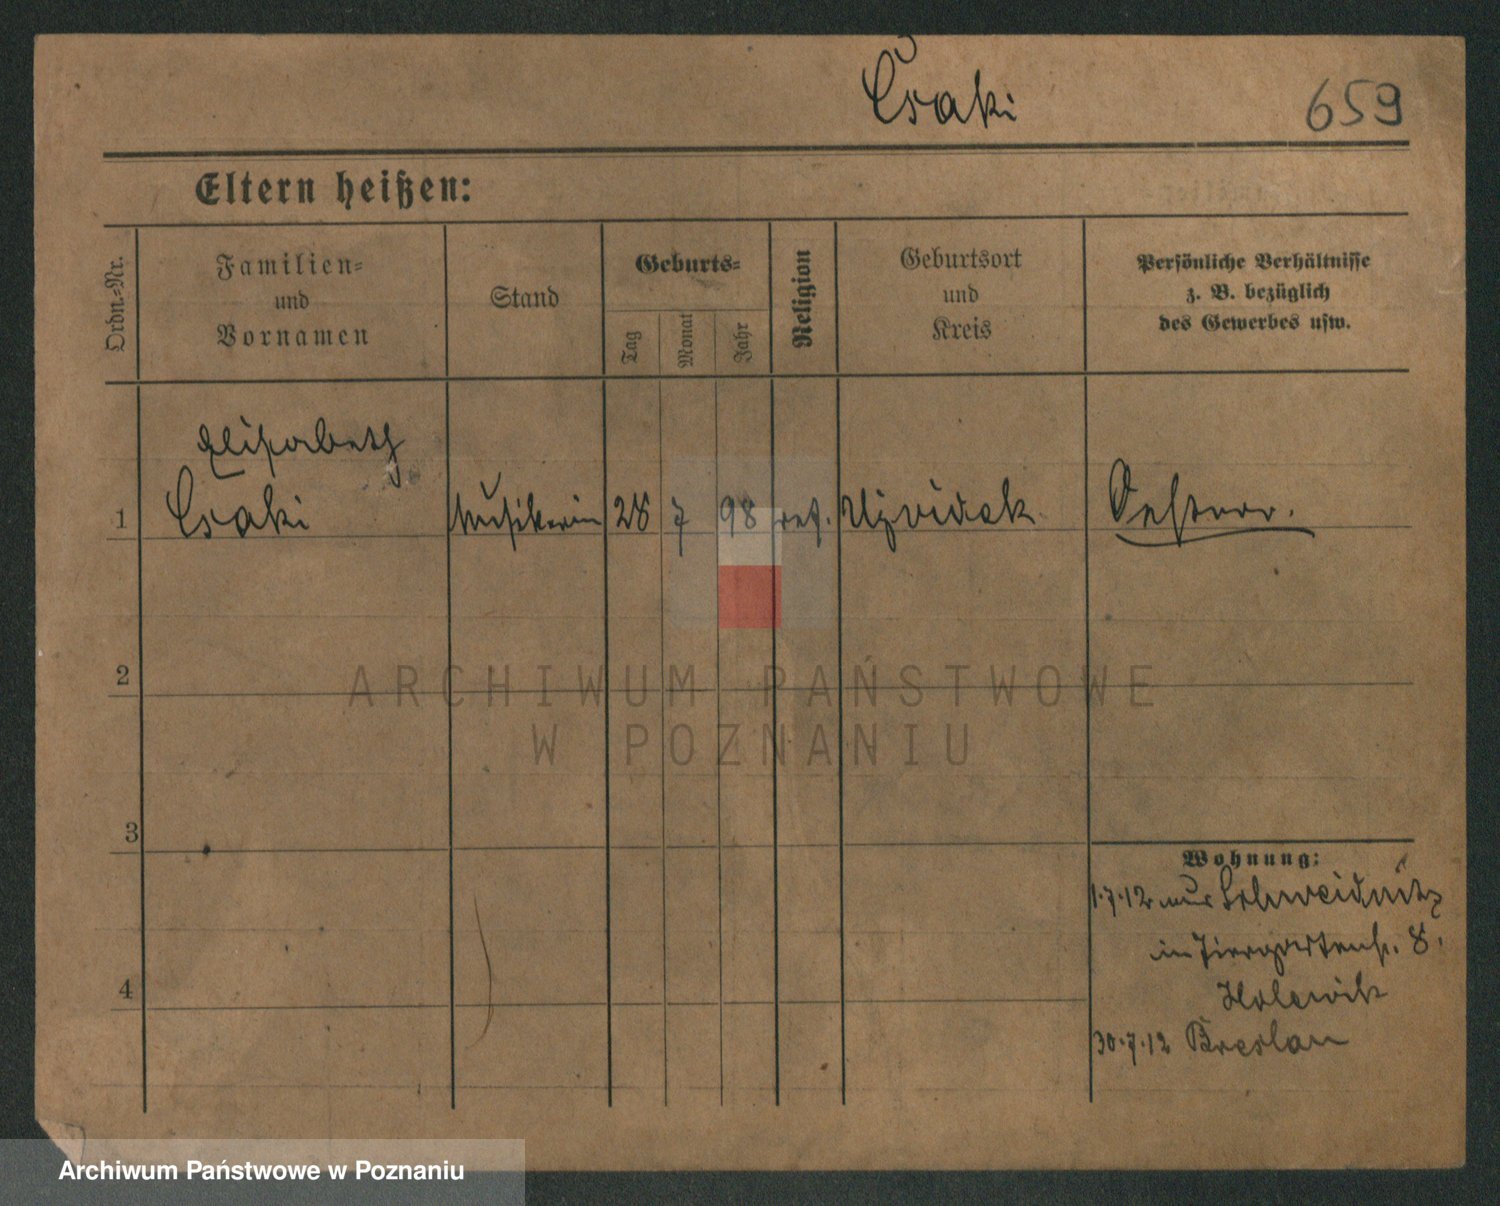 Csaki
659
Eltern heißen:
Ordn.-Nr.
Familien-
und
Vornamen
Stand
Geburts-
Tag
Monat
Jahr
Religion
Geburtsort
und
Kreis
Persönliche Verhältnisse
z. B. bezüglich
des Gewerbes usw.
Elisabeth
1 Csaki Musikerin 28 7 98 ref. Ujvidek Oesterr.
2
ARCHIWUM PAŃSTWOWE
W POZNANIU
3
Wohnung:
1.7.12 aus Schweidnitz
in Tiergartenstr. 8.
30.7.12 Breslau
4
Archiwum Państwowe w Poznaniu